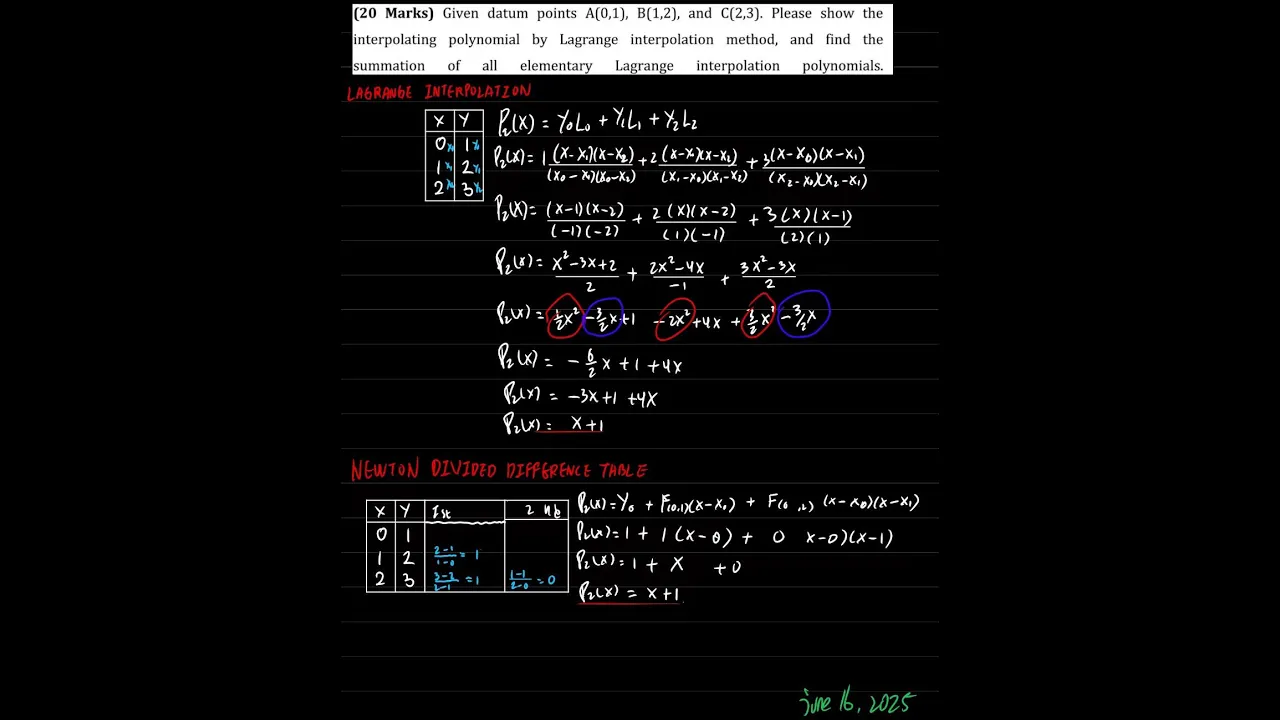 (20 Marks) Given datum points A(0,1), B(1,2), and C(2,3). Please show the
interpolating polynomial by Lagrange interpolation method, and find the
summation of all elementary Lagrange interpolation polynomials.
LAGRANGE INTERPOLATION
X Y
0 x₀ 1 y₀
1 x₁ 2 y₁
2 x₂ 3 y₂
P₂(X) = Y₀L₀ + Y₁L₁ + Y₂L₂
P₂(X) = 1 (X-X₁)(X-X₂)/(X₀-X₁)(X₀-X₂) + 2 (X-X₀)(X-X₂)/(X₁-X₀)(X₁-X₂) + 3(X-X₀)(X-X₁)/(X₂-X₀)(X₂-X₁)
P₂(X) = (X-1)(X-2)/(-1)(-2) + 2(X)(X-2)/(1)(-1) + 3(X)(X-1)/(2)(1)
P₂(X) = X²-3X+2/2 + 2X²-4X/-1 + 3X²-3X/2
P₂(X) = 1/2X² -3/2X+1 -2X² +4X + 3/2X² -3/2X
P₂(X) = -6/2X+1+4X
P₂(X) = -3X+1+4X
P₂(X) = X+1
NEWTON DIVIDED DIFFERENCE TABLE
X Y 1st 2
0 1
1 2 2-1/1-0 = 1
2 3 3-2/2-1 = 1 1-1/2-0 = 0
P₂(X) = Y₀ + F(0,1)(X-X₀) + F(0 ,2) (X-X₀)(X-X₁)
P₂(X) = 1 + 1(X-0) + 0 X-0)(X-1)
P₂(X) = 1 + X +0
P₂(X) = X+1
june 16, 2025